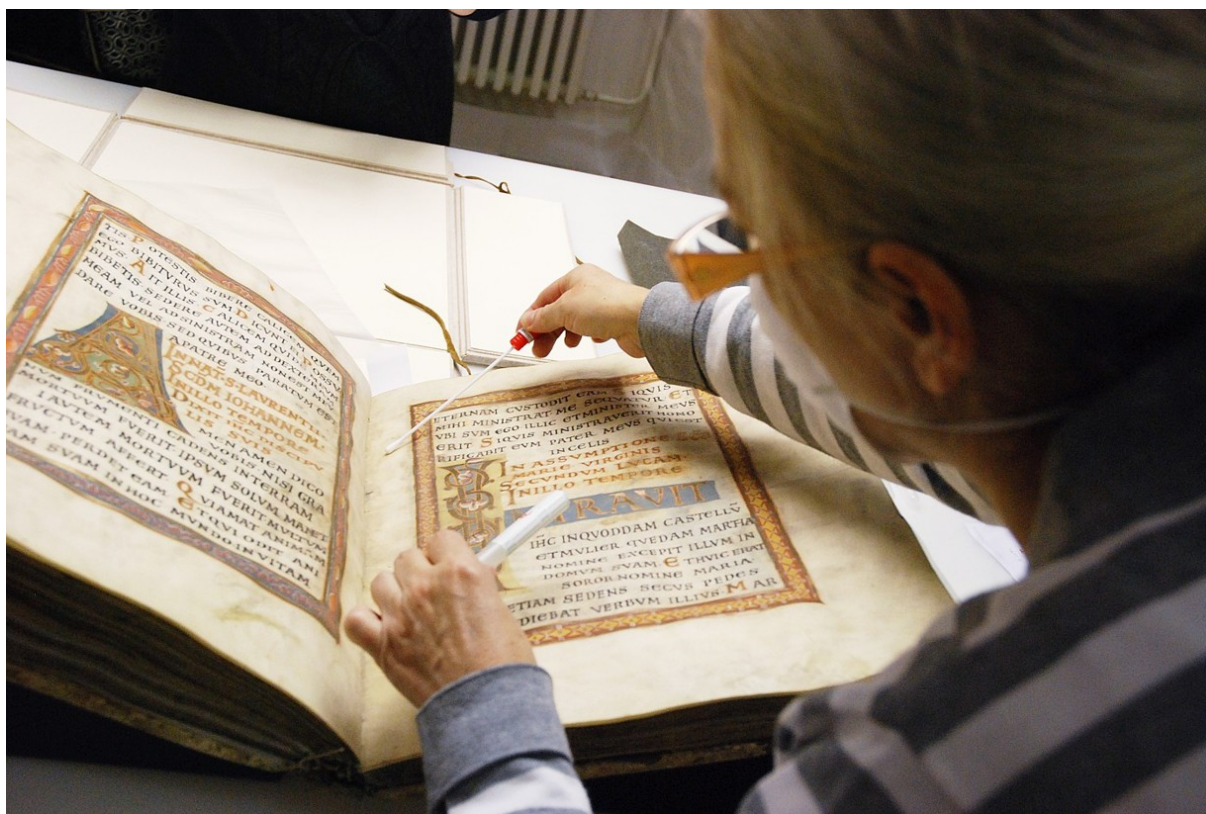 TIS POTESTIS BIBERE CALICEM QVEM
EGO BIBITVRVS SVM DICVNT POSSV
MVS AIT ILLIS CALICEM QVIDEM
BIBETIS SEDERE AVTEM ADDEXTERAM
MEAM VEL ADSINISTRAM NONEST
DARE VOBIS SEDQVIBVS PARATVM EST
APATRE MEO
INNAT S LAVRENTI
SCDM IOHANNEM
INILLO TEMPORE
DIXIT
LIS SVIS
MEN AMEN DICO
VOBIS NISI GRA
NVM FRVMENTI CADENS INTERRAM
MORTVVM FVERIT IPSVM SOLVM MANET
I AVTEM MORTVVM FVERIT MVLTVM
FRVCTVM AFFERT QVIAMAT ANIMAM
SVAM PERDET EAM ETQVI ODIT ANI
AM SVAM INHOC MVNDO INVITAM
ETERNAM CVSTODIT EAM SIQVIS
MIHI MINISTRAT ME SEQVATVR ET
VBI SVM EGO ILLIC ETMINISTER MEVS
ERIT SIQVIS MINISTRAVERIT HOMO
RIFICABIT EVM PATER MEVS QVIEST
INCELIS
IN ASSVMPTIONE SCE
MARIE VIRGINIS
SECVNDVM LVCAM
INILLO TEMPORE
INTRAVIT
IHC INQVODDAM CASTELLV̄
ETMVLIER QVEDAM MARTHA
NOMINE EXCEPIT ILLVM IN
DOMVM SVAM ETHVIC ERAT
SOROR NOMINE MARIA
ETIAM SEDENS SECVS PEDES
DIEBAT VERBVM ILLIVS MAR